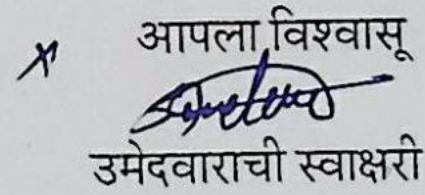 आपला विश्वासू
उमेदवाराची स्वाक्षरी